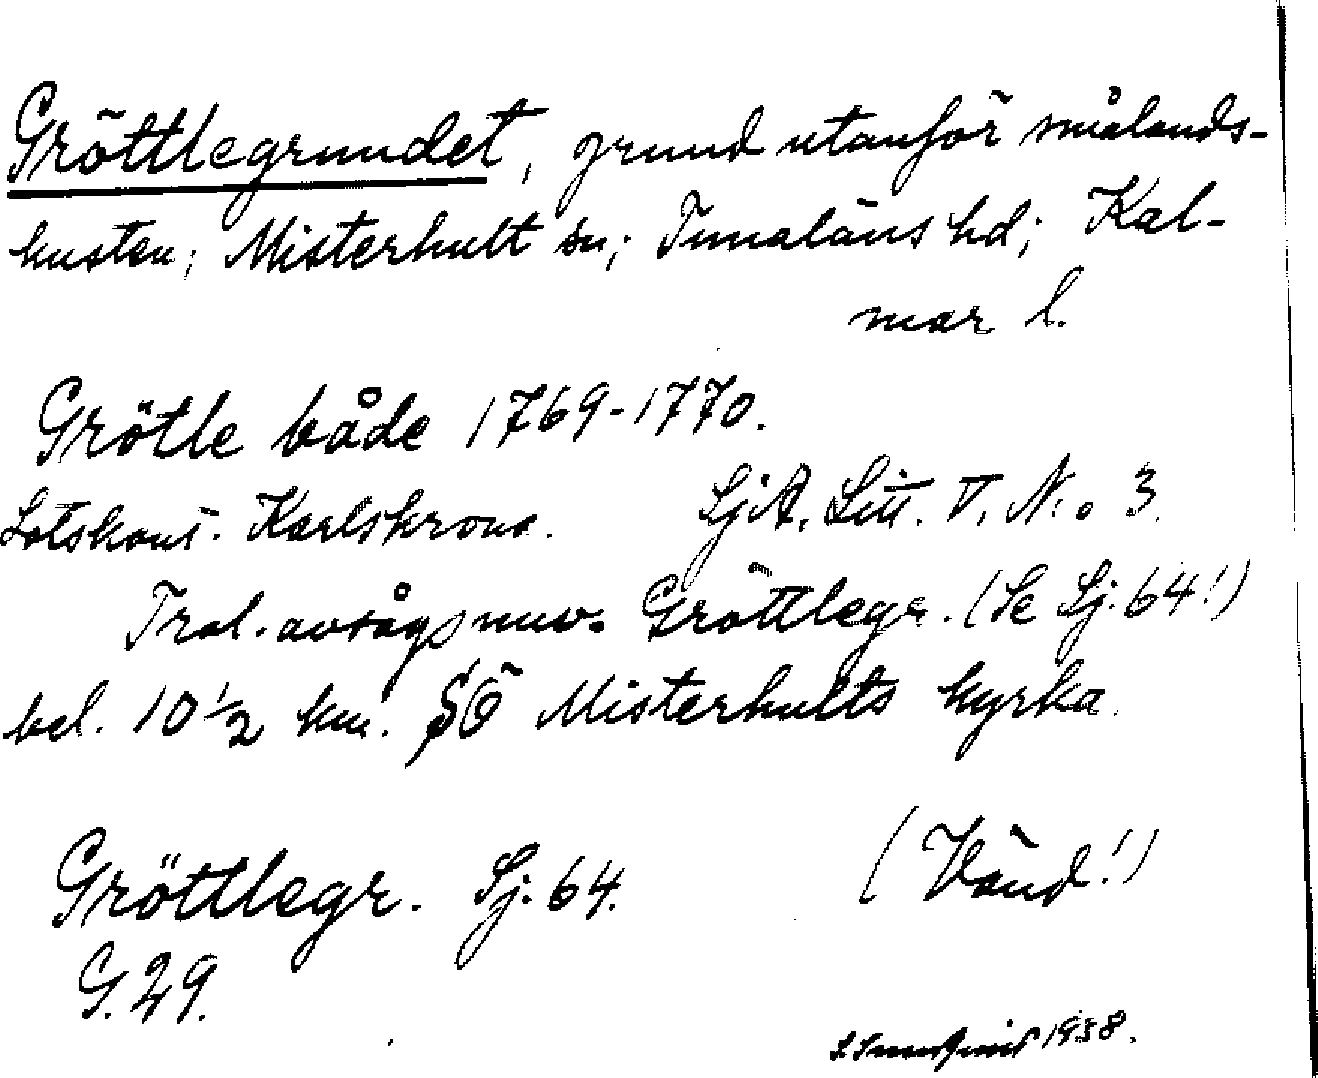 Gröttlegrundet, grund utanför smålands-
kusten; Misterhult sn; Tunaläns hd; Kal-
mar l.
Grötle både 1769-1770.
Lotskont. Karlskrona. SjA. Litt. V. No 3.
Trol. avságs nuv. Gröttlegr. (Se Sj. 64!)
bel. 10 1/2 km. SÖ Misterhults kyrka.
(Vänd!)
Gröttlegr. Sj. 64.
G. 29.
1938.